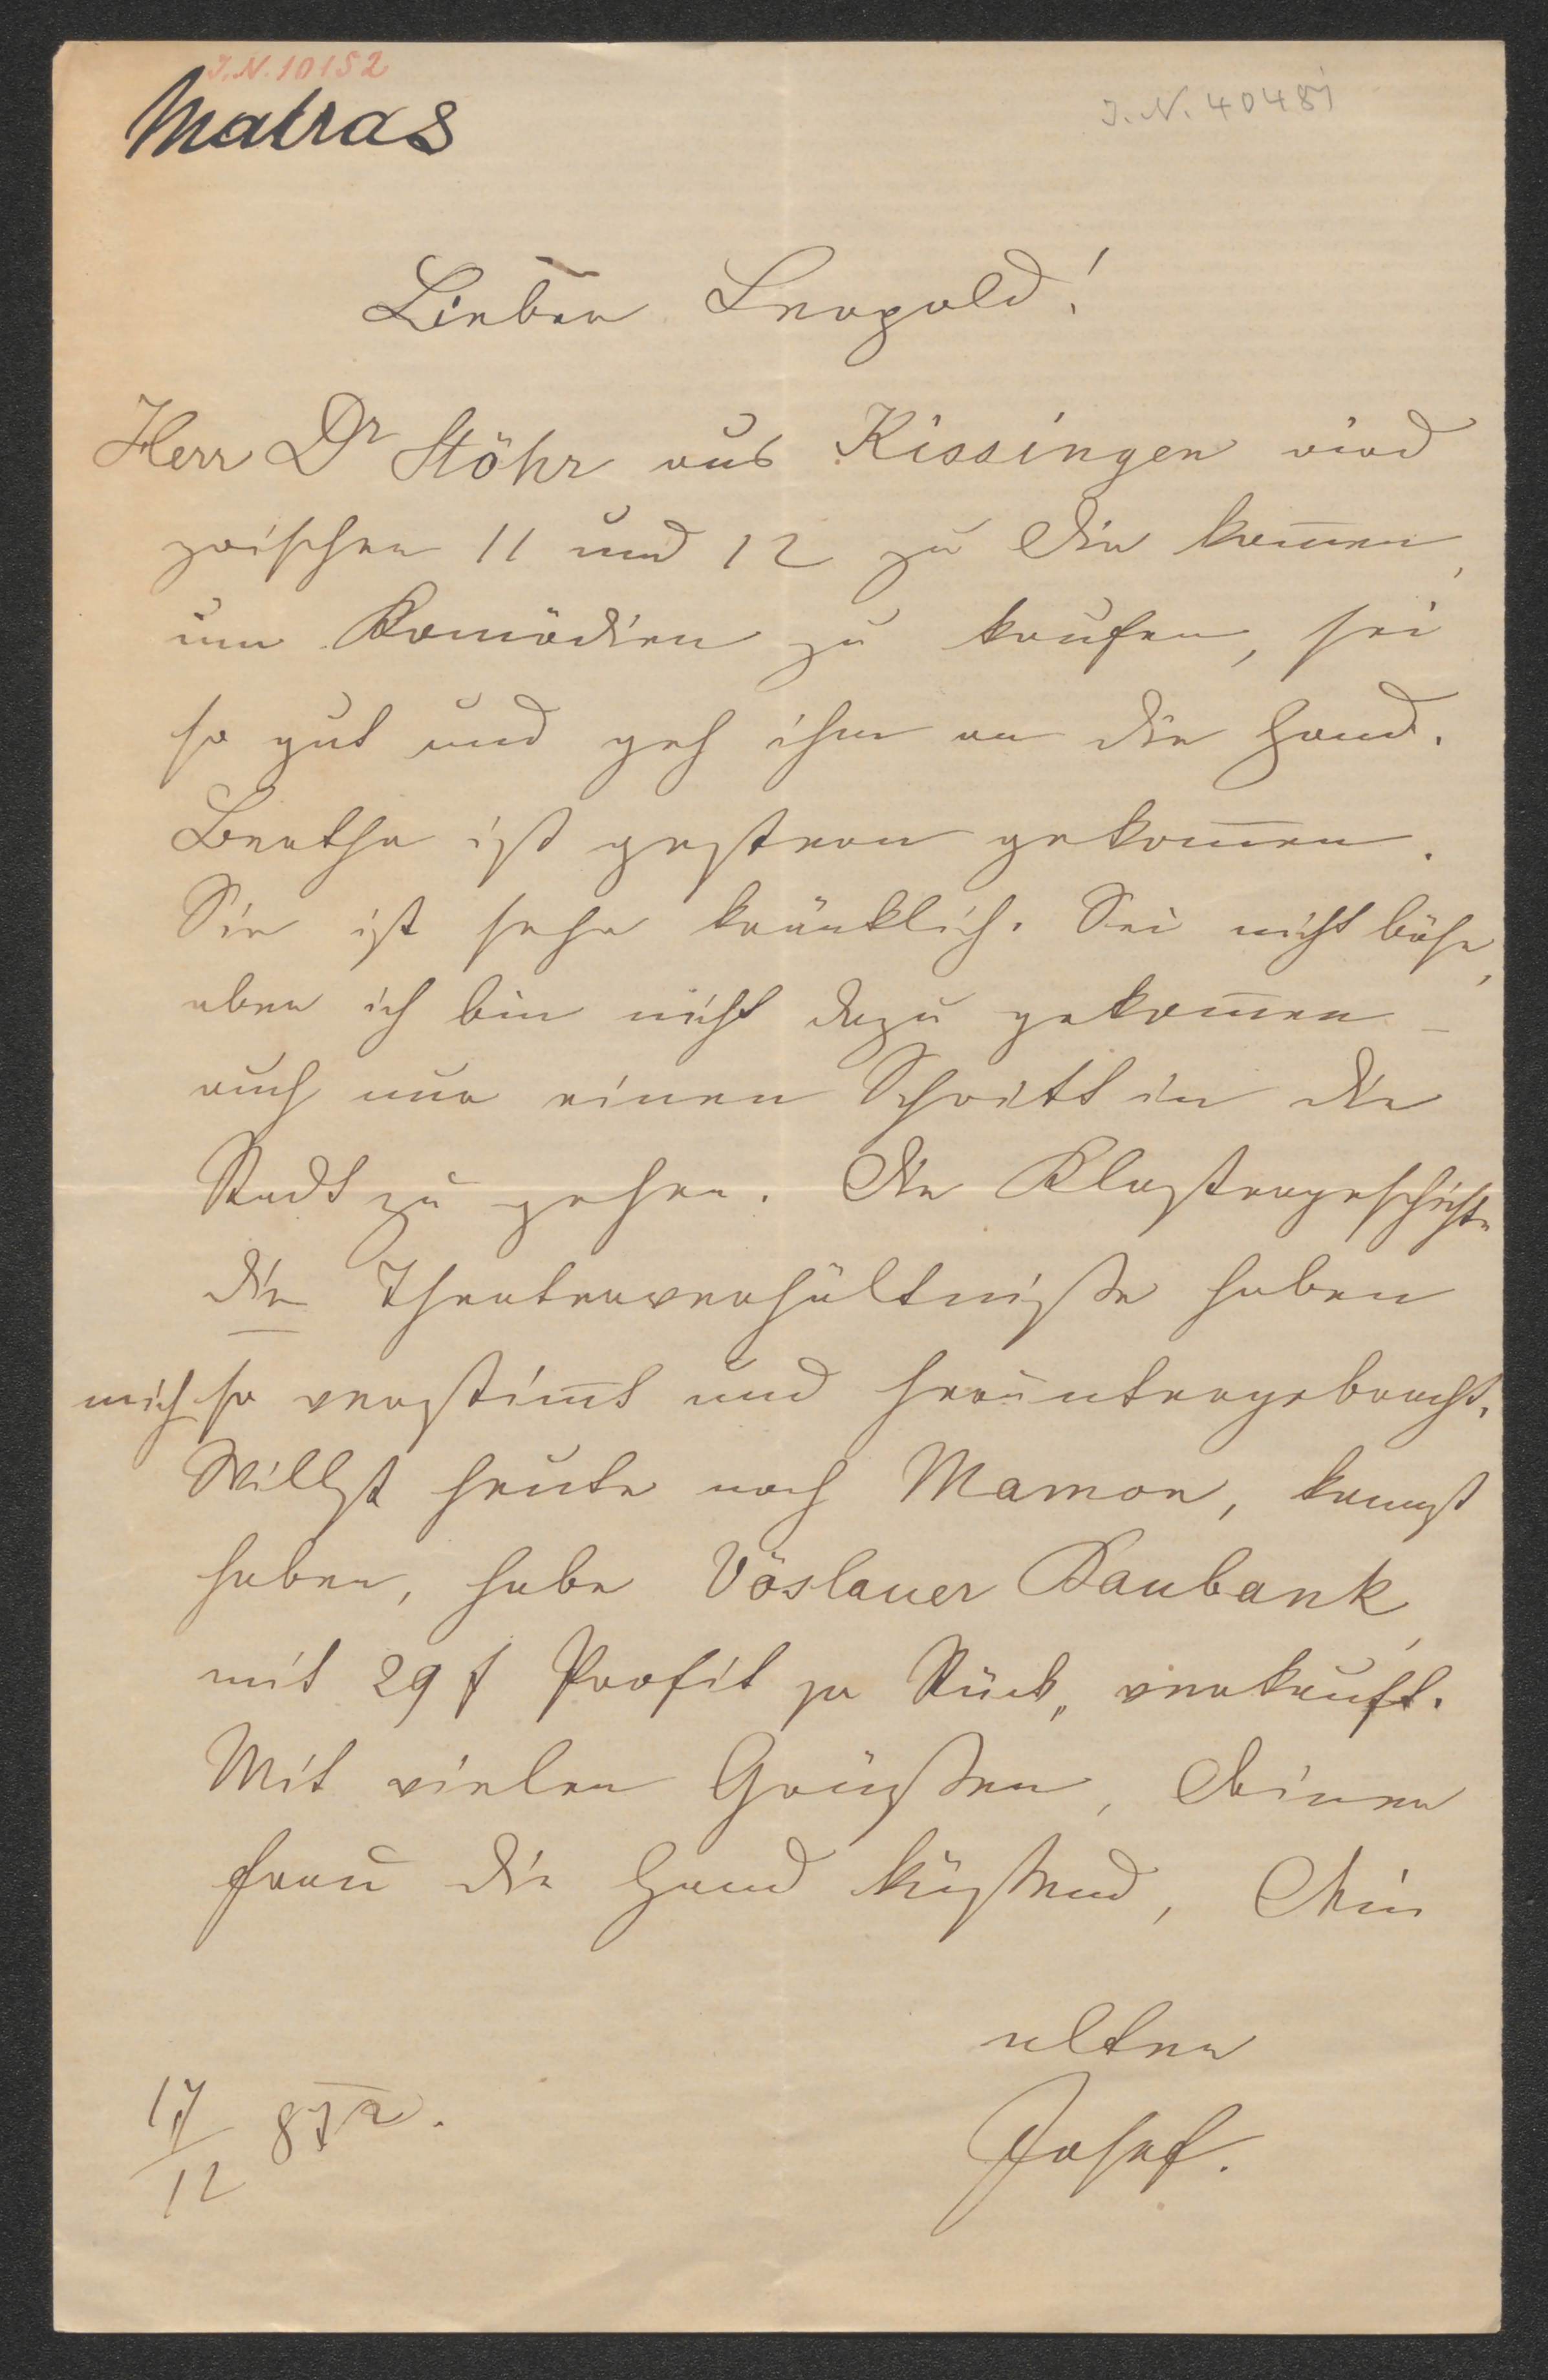 J.N. 10152
Matras
J.N. 40481
Lieber Leopold!
Herr Dr Stöhr aus Kissingen wird
zwischen 11 und 12 zu Dir kom̄en,
um Komödien zu kaufen, sei
so gut und geh ihm an die Hand.
Bertha ist gestern gekom̄en.
Sie ist sehr kränklich. Sei nicht böse,
aber ich bin nicht dazu gekom̄en –
auch nur einen Schritt in die
Stadt zu gehen. Die Klostergeschichte
die Theaterverhältniße haben
mich so verstim̄t und heruntergebracht.
Willst heute noch Mamon, kannst
haben, habe Vöslauer Baubank,
mit 29 f Profit per Stück, verkauft.
Mit vielen Grüßen, Deiner
Frau die Hand küßend, Dein
alter
Josef.
17/12 872.